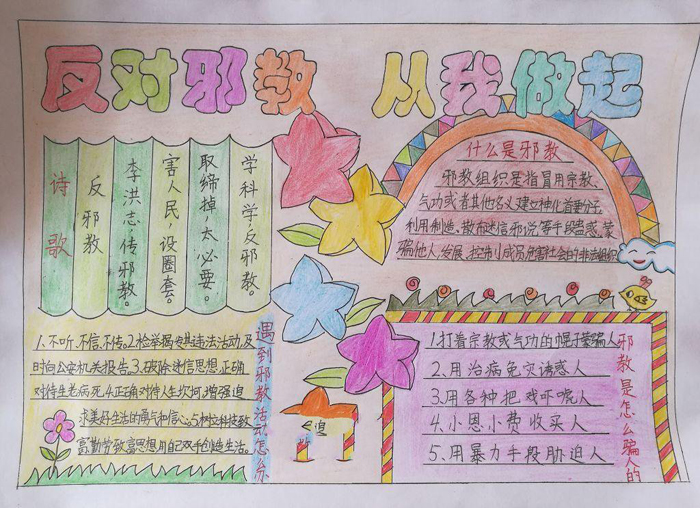 反对邪教 从我做起
诗歌
反邪教
李洪志,传邪教。
害人民,设圈套。
取缔掉,太必要。
学科学,反邪教。
什么是邪教
邪教组织是指冒用宗教、
气功或者其他名义建立神化首要分子,
利用制造、散布迷信邪说等手段蛊惑、蒙
骗他人,发展、控制成员,危害社会的非法组织
遇到邪教活动怎么办
1.不听、不信、不传。2.检举揭发其违法活动,及
时向公安机关报告。3.破除迷信思想,正确
对待生老病死。4.正确对待人生坎坷,增强追
求美好生活的勇气和信心。5.树立科技致
富、勤劳致富思想,用自己双手创造生活。
邪教是怎么骗人的
1.打着宗教或气功的幌子蒙骗人
2、用治病免灾诱惑人
3、用各种把戏吓唬人
4、小恩小费收买人
5、用暴力手段胁迫人